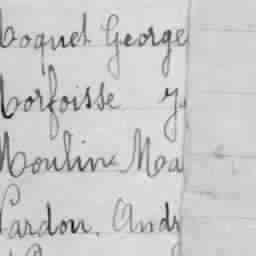 Moquet George
Morfoisse J.
Moulin Ma
Pardon. Andr